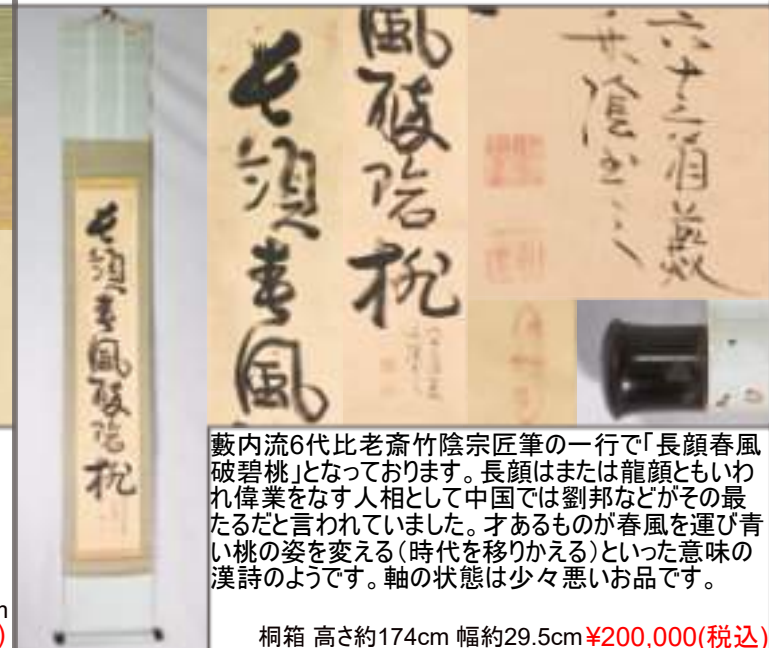 春風
風
桃
六十三翁藪
竹陰書之
春風
桃
藪内流6代比老斎竹陰宗匠筆の一行で「長顔春風
破碧桃」となっております。長顔はまたは龍顔ともいわ
れ偉業をなす人相として中国では劉邦などがその最
たるだと言われていました。才あるものが春風を運び青
い桃の姿を変える（時代を移りかえる）といった意味の
漢詩のようです。軸の状態は少々悪いお品です。
m
)
桐箱 高さ約174cm 幅約29.5cm ¥200,000(税込)